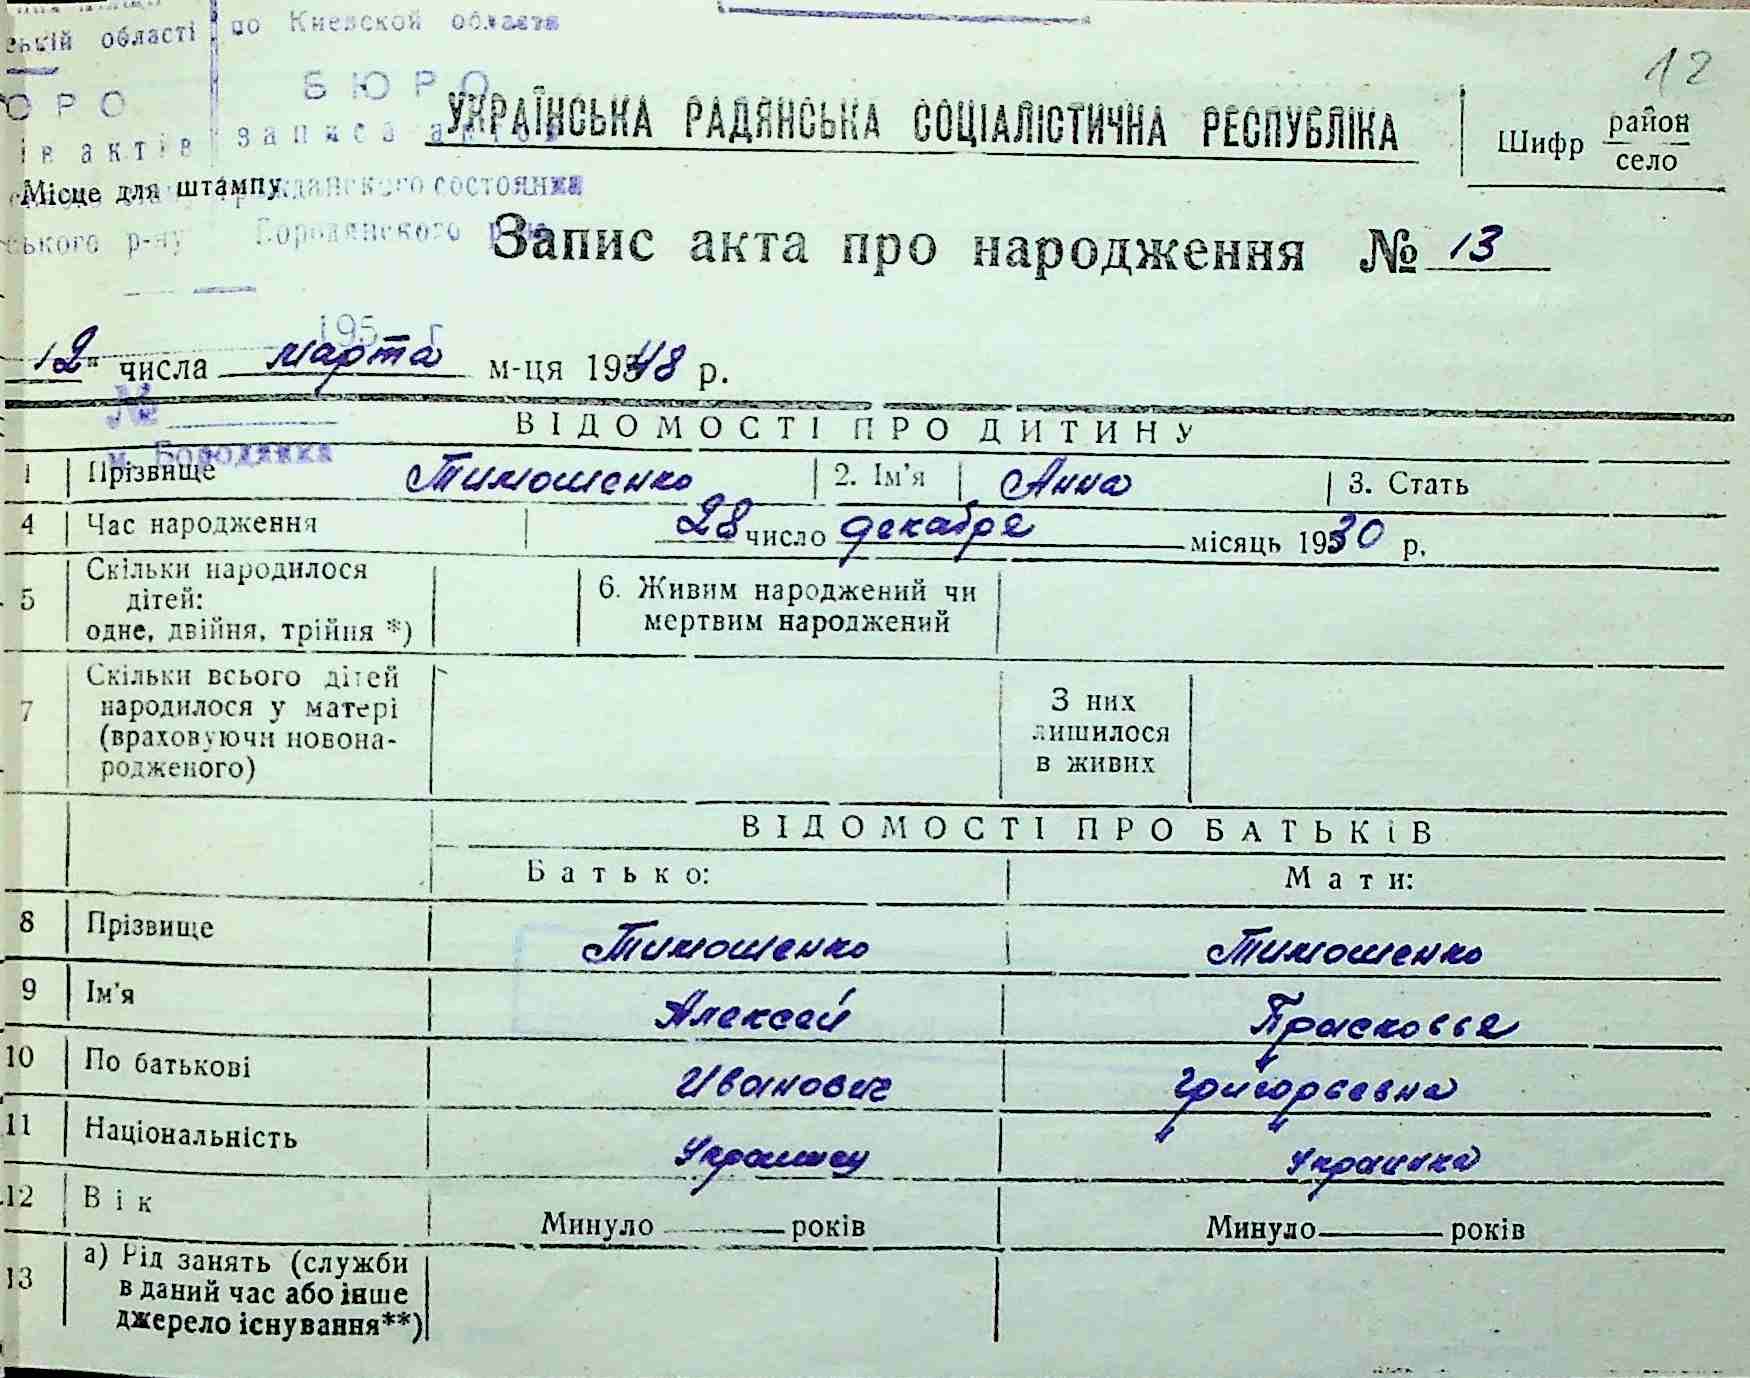 ській області по Киевской области
12
БЮРО
УКРАЇНСЬКА РАДЯНСЬКА СОЦІАЛІСТИЧНА РЕСПУБЛІКА
Шифр район
село
ів актів записа актов
Місце для штампу гражданского состояния
ського р-ну Бородянского
Запис акта про народження № 13
195 г.
12 " числа марта м-ця 1948 р.
№
ВІДОМОСТІ ПРО ДИТИНУ
м. Бородянка
1 Прізвище Тимошенко 2. Ім'я Анна 3. Стать
4 Час народження 28 число декабря місяць 1930 р.
5 Скільки народилося
дітей:
одне, двійня, трійня *)
6. Живим народжений чи
мертвим народжений
7 Скільки всього дітей
народилося у матері
(враховуючи новона-
родженого)
З них
лишилося
в живих
ВІДОМОСТІ ПРО БАТЬКІВ
Батько: Мати:
8 Прізвище Тимошенко Тимошенко
9 Ім'я Алексей Прасковья
10 По батькові Иванович Григорьевна
11 Національність Украинец Украинка
12 Вік Минуло років Минуло років
13 а) Рід занять (служби
в даний час або інше
джерело існування**)